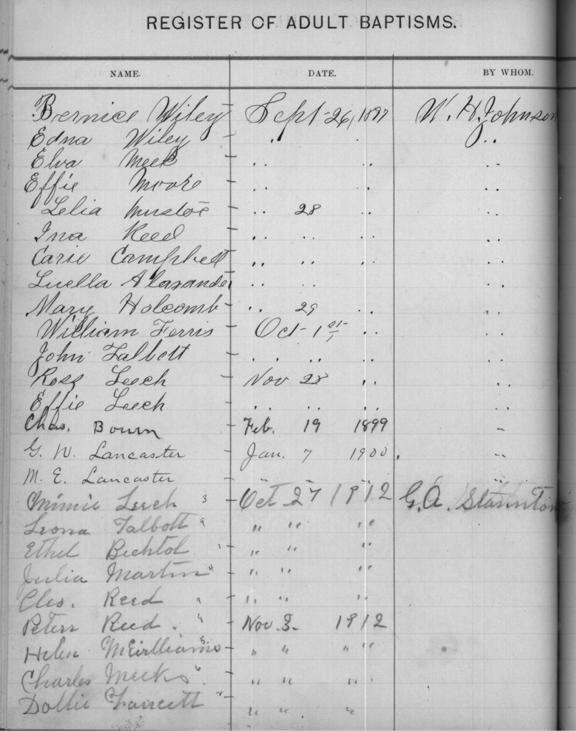 REGISTER OF ADULT BAPTISMS.
NAME. DATE. BY WHOM.
Bernice Wiley Sept 26, 1897 W. H. Johnson
Edna Wiley " " "
Elva Meek " " "
Effie Moore " " "
Lelia " 28 " "
Ina Reed " " " "
Carie Campbell " " " "
Luella Alexander " " " "
Mary Holcomb " 29 " "
William Ferris Oct 1st " "
John Talbott " " " "
Ross Leech Nov 28 " "
Effie Leech " " " "
Chas. Bourn Feb. 19 1899 "
G. W. Lancaster Jan. 7 1900. "
M. E. Lancaster " " " "
Minnie Leech Oct 27 1912 G. A. Staunton
Leona Talbott " " "
Ethel Bechtol " " "
Julia Martin " " "
Cleo. Reed " " "
Reed " Nov. 3. 1912
Helen " " "
Charles Meeks " " "
Dollie " " "